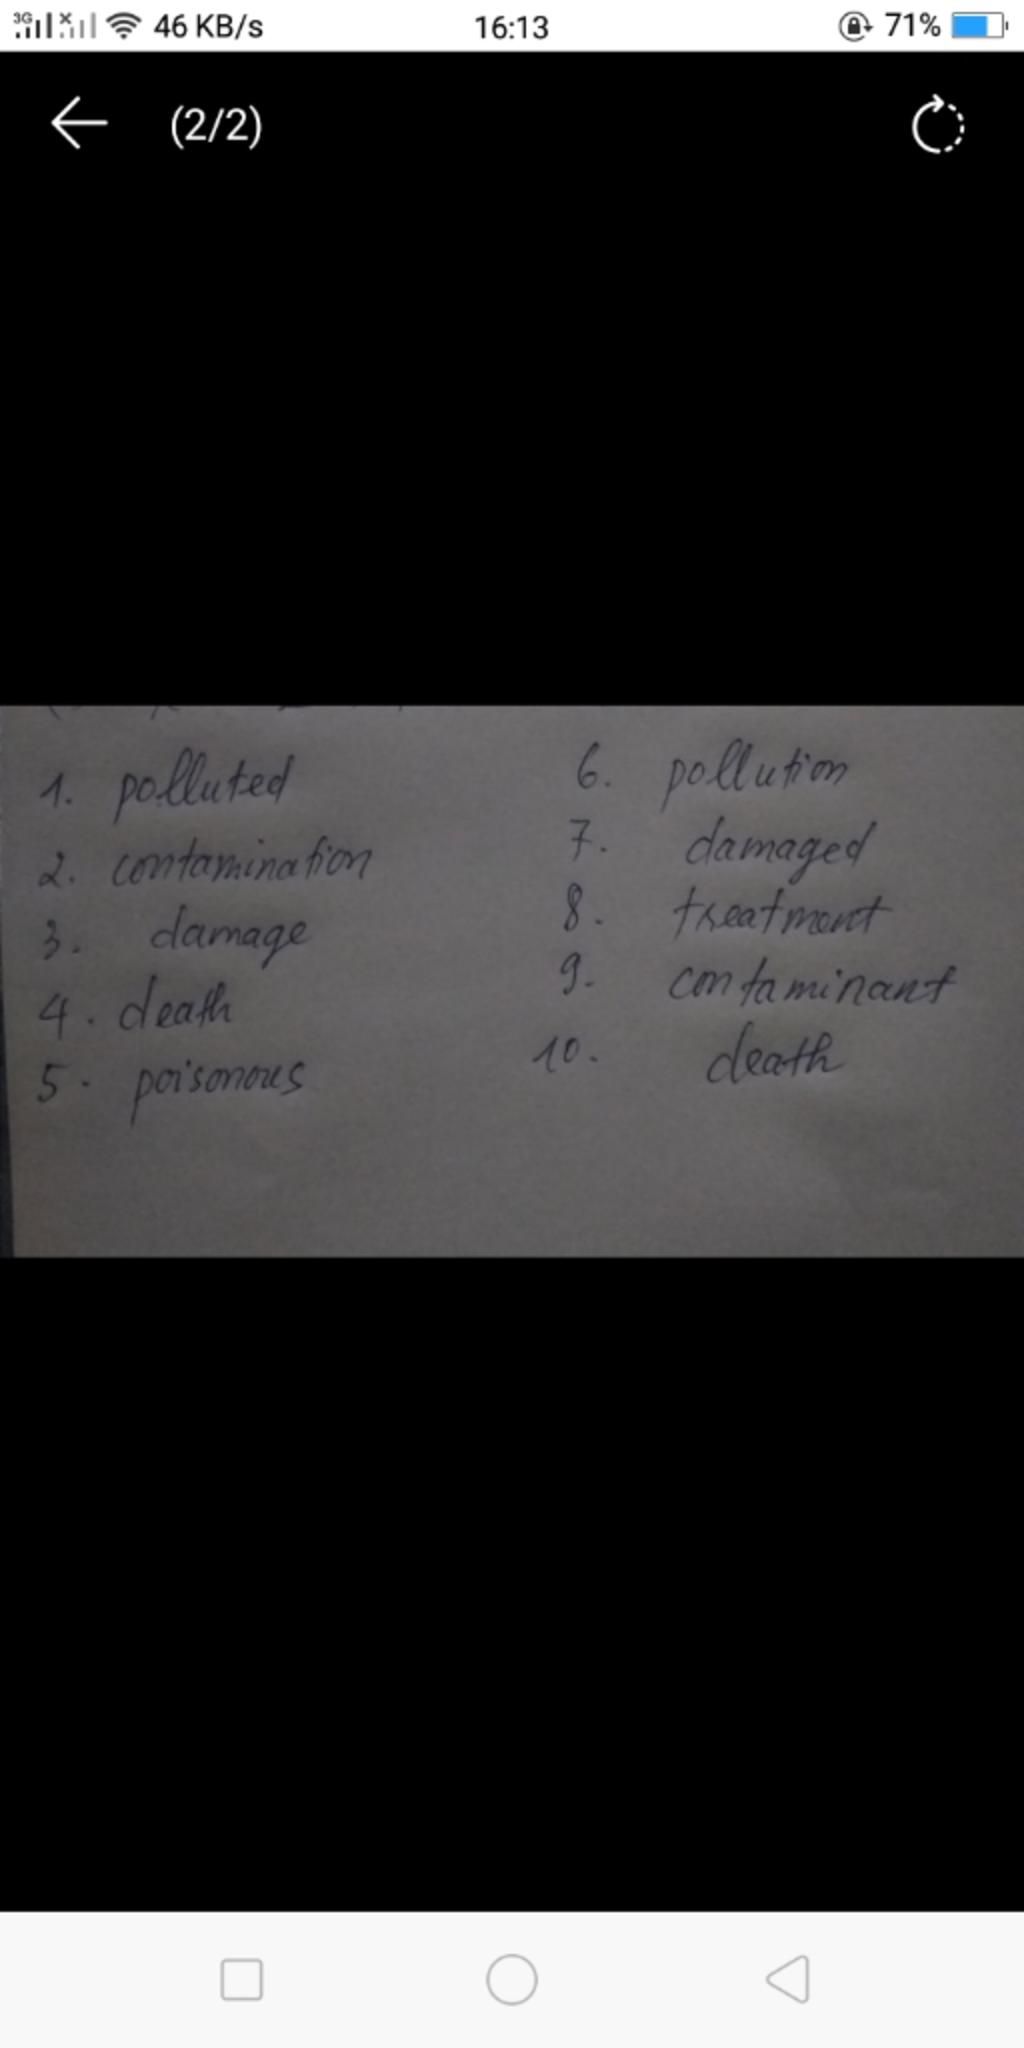 3G 46 KB/s 16:13 71%
(2/2)
1. polluted
2. contamination
3. damage
4. death
5. poisonous
6. pollution
7. damaged
8. treatment
9. contaminant
10. death